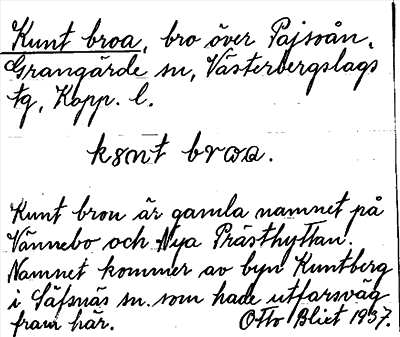 Kunt broa, bro över Pajsoån,
Grangärde sn, Västerbergslags
tg, Kopp. l.
kɞnt broa.
Kunt bron är gamla namnet på
Vännebo och Nya Prästhyttan.
Namnet kommer av byn Kuntberg
i Säfsnäs sn. som hade utfarsväg
fram här. Otto Blixt 1937.